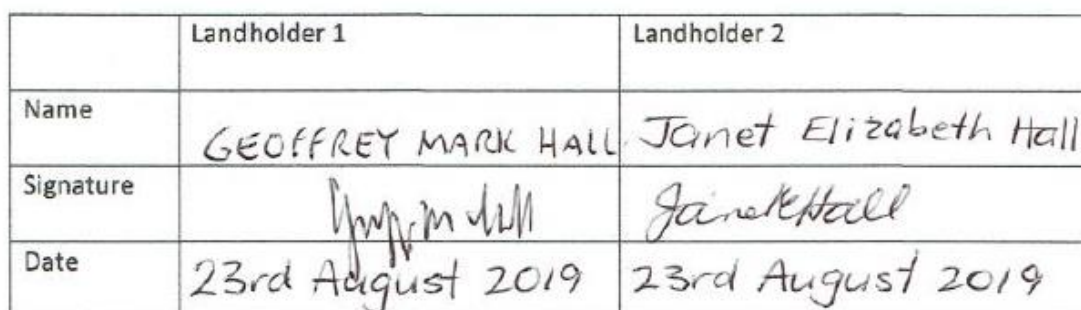 Landholder 1 Landholder 2
Name GEOFFREY MARK HALL Janet Elizabeth Hall
Signature Janet E Hall
Date 23rd August 2019 23rd August 2019